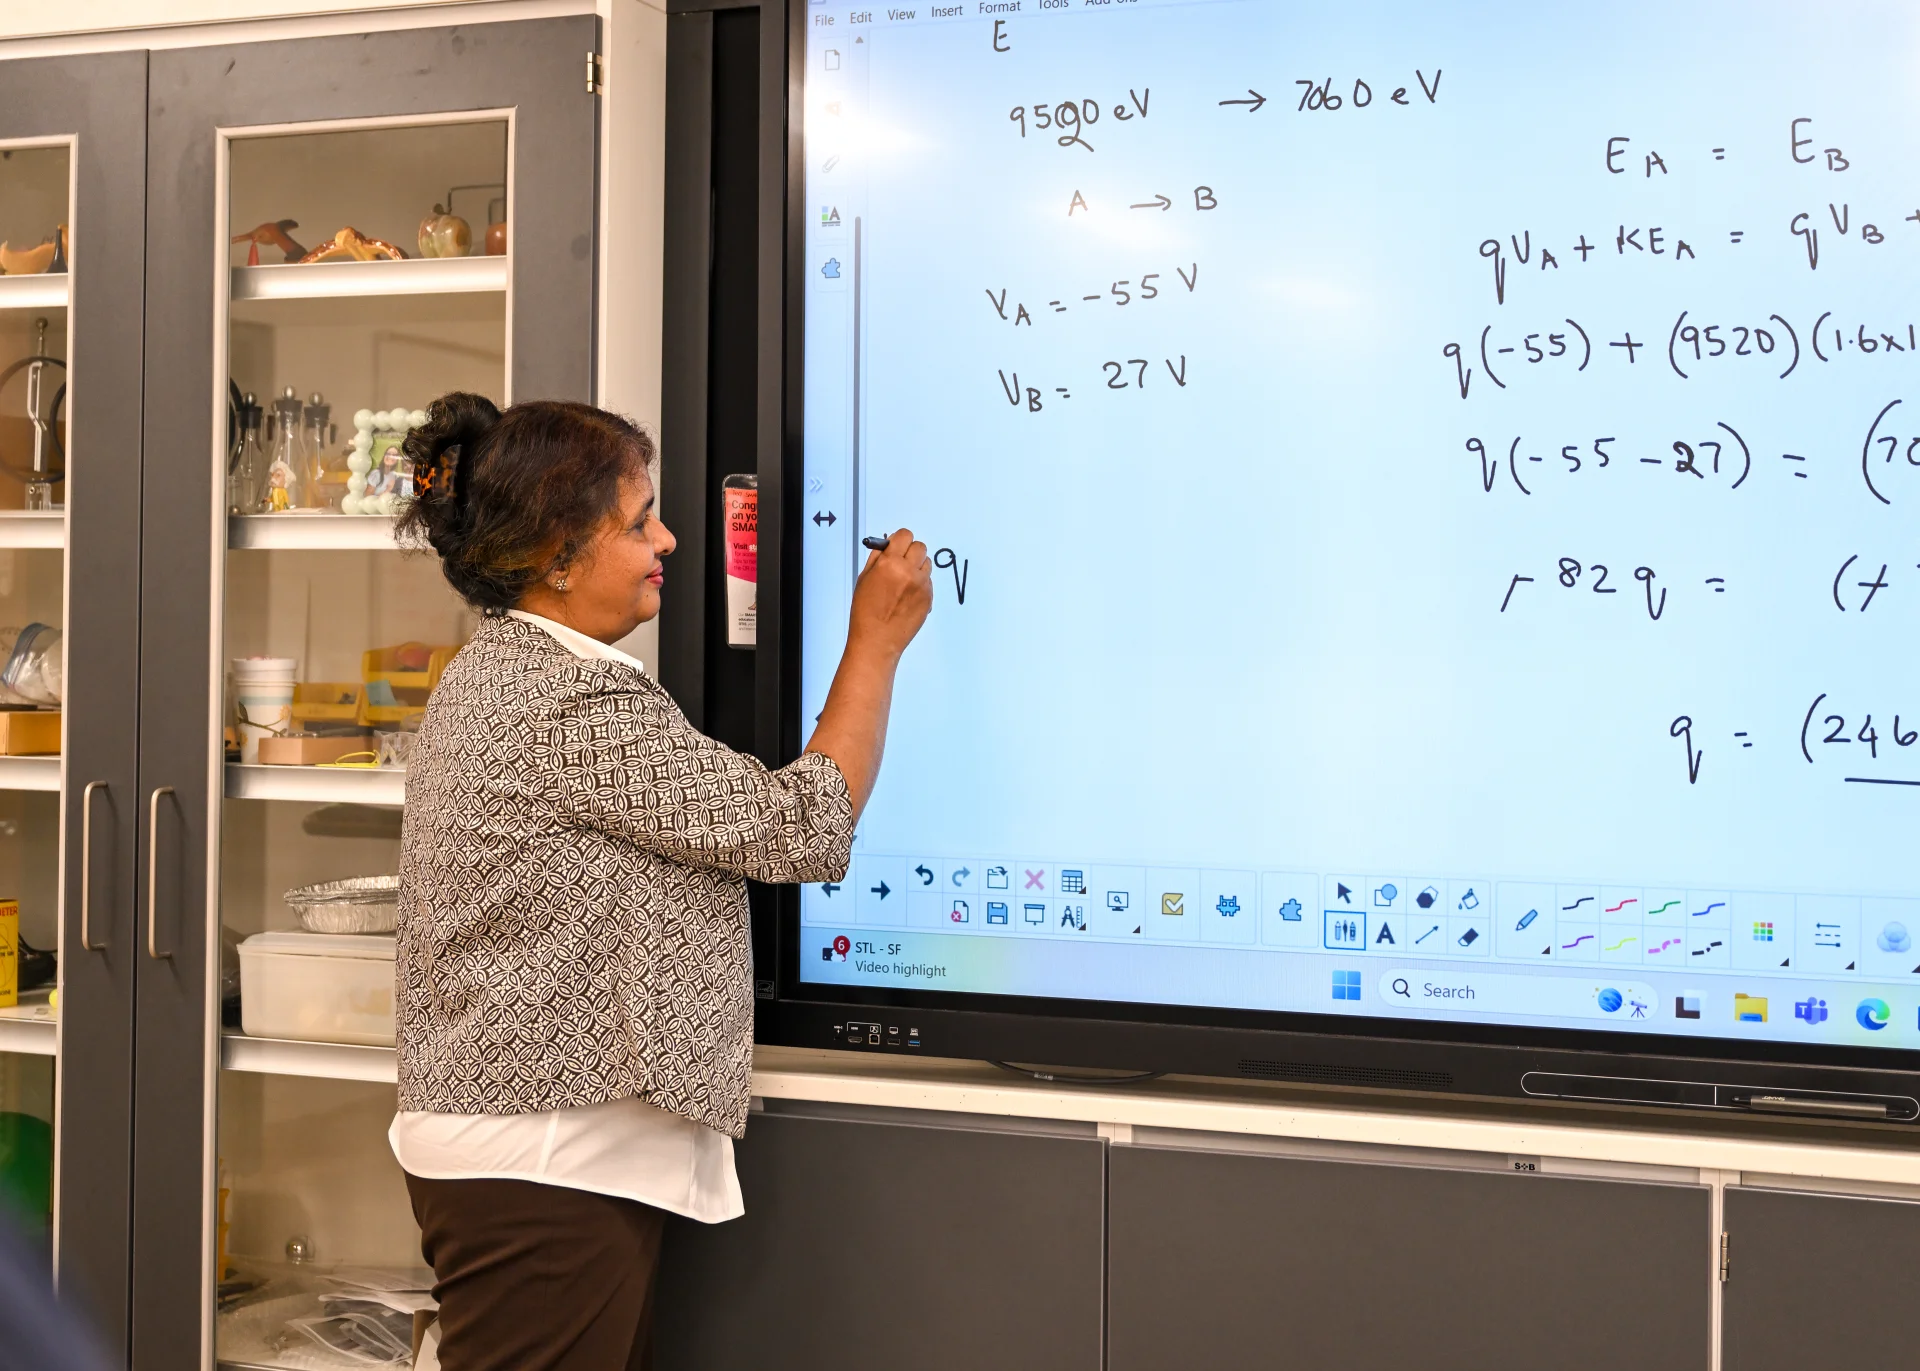 File Edit View Insert Format Tools Add-ons
E
9520 eV → 7060 eV
A → B
V_A = -55 V
V_B = 27 V
q
E_A = E_B
qV_A + KE_A = qV_B +
q(-55) + (9520)(1.6x1
q(-55 -27) = (70
-82q = (
q = (246
Cong
on yo
SMA
Visit
6
STL - SF
Video highlight
Search
S+B